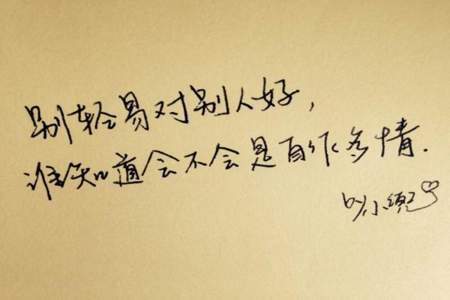 别轻易对别人好,
谁知道会不会是自作多情.
by小